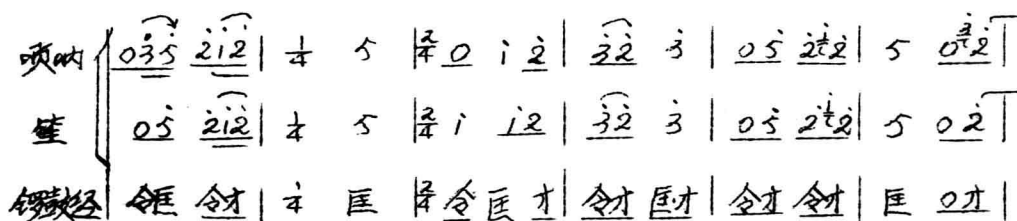 唢呐 0 3̇ 5̇ 2̇ 1̇ 2̇ | 1/4 5 | 2/4 0 i 2̇ | 3̇ 2̇ 3̇ | 0 5̇ 2̇ 1̇ 2̇ | 5 0 3̇ 2̇ |
0 5̇ 2̇ 1̇ 2̇ | 1/4 5 | 2/4 i i 2̇ | 3̇ 2̇ 3̇ | 0 5̇ 2̇ 1̇ 2̇ | 5 0 2̇ |
锣鼓经 令匡 令才 | 1/4 匡 | 2/4 令 匡 才 | 令才 匡才 | 令才 令才 | 匡 0才 |